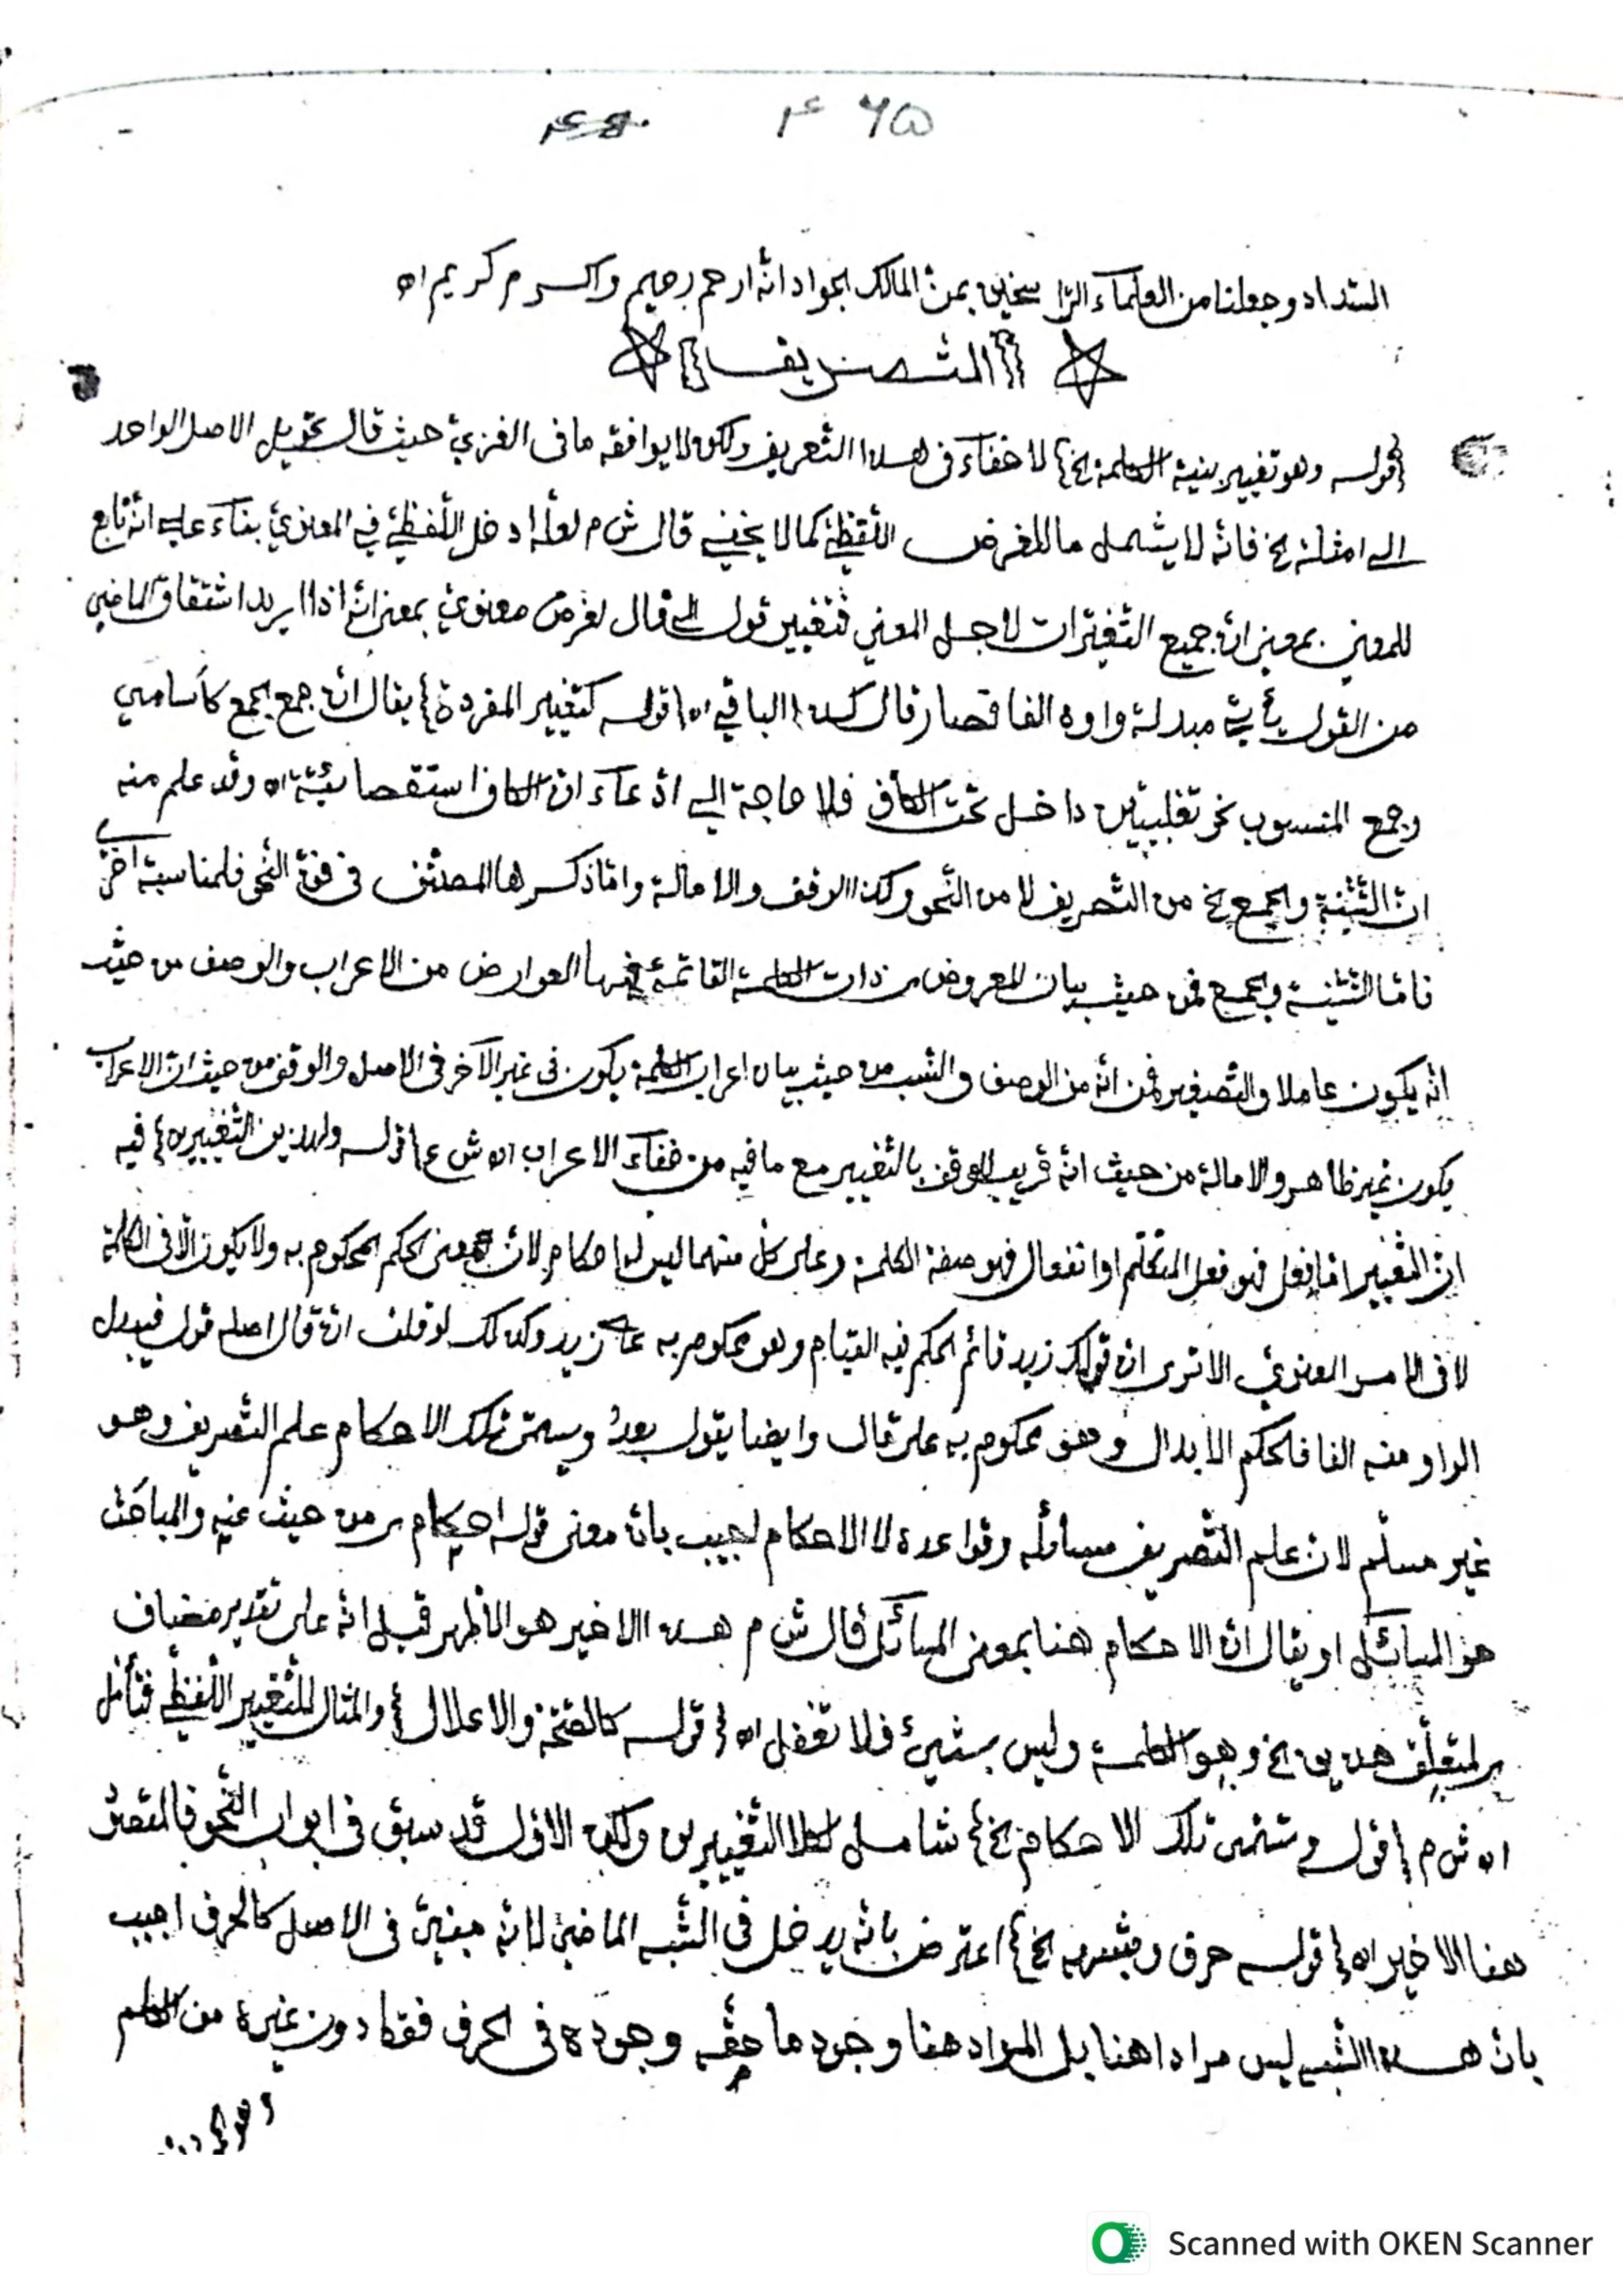 ۴۶۵
السداد وجعلنا من العلماء الرّاسخين بمنّ المالك الجواد انّه ارحم رحيم واكرم كريم اه
التّصريف
{قوله وهو تغيير بنية الكلمة الخ} لا خفاء فى هذا التّعريف ولكن لا يوافقه ما فى الغزىّ حيث قال تحويل الاصل الواحد
الى امثلة الخ فانّه لا يشمل ما للغرض اللّفظىّ كما لا يخفى قال ش م لعلّه ادخل اللّفظىّ فى المعنوىّ بناء على انّه تابع
للمعنى بمعنى انّ جميع التّغيّرات لاجل المعنى فتغيير قول الى قال لغرض معنوىّ بمعنى انّه اذا اريد اشتقاق الماضى
من القول يأتى مبدلة واوه الفا فصار قال كذا الباقى اه {قوله كتغيير المفرد} يقال انّ جمع الجمع كأسامى
وجمع المنسوب نحو تغلبيّين داخل تحت الكاف فلا حاجة الى ادّعاء انّ الكاف استقصائيّة اه وقد علم منه
انّ التّثنية والجمع الخ من التّصريف لا من النّحو وكذا الوقف والامالة وامّا ذكرها المصنّف فى فنّ النّحو فلمناسبة اخرى
فامّا التّثنية والجمع فمن حيث بيان المعروض ذات الكلمة القائمة بها العوارض من الاعراب والوصف من حيث
انّه يكون عاملا والتّصغير فمن انّه من الوصف والنّسب من حيث بيان اعراب الكلمة يكون فى غير الآخر فى الاصل والوقف من حيث انّ الاعراب
يكون غير ظاهر والامالة من حيث انّه قريب للوقف بالتّغيير مع ما فيه من خفاء الاعراب اه ش ع {قوله ولهذين التّغييرين} فيه
انّ التّغيير امّا فعل فهو فعل المتكلّم او انفعال فهو صفة الكلمة وعلى كلّ منهما ليس لها احكام لانّ معنى الحكم المحكوم به ولا يكون الّا فى الكلمة
لا فى الامر المعنوىّ الا ترى انّ قولك زيد قائم الحكم فيه القيام وهو محكوم به على زيد وكذلك لو قلت انّ قال اصله قول فيبدل
الواو منه الفا فالحكم الابدال وهو محكوم به على قال وايضا يقول بعد وتسمّى تلك الاحكام علم التّصريف وهو
غير مسلّم لانّ علم التّصريف مسائله وقواعده لا الاحكام اجيب بانّ معنى قوله احكام من حيث عنه والمباحث
هو المسائل او يقال انّ الاحكام هنا بمعنى المسائل قال ش م هذا الاخير هو الاظهر قيل انّه على تقدير مضاف
لمتعلّق هذين الخ وهو الكلمة وليس بشىء فلا تغفل اه {قوله كالصّحّة والاعلال} والمثال للتّغيير اللّفظىّ فتأمّل
اه ش م {قوله وتسمّى تلك الاحكام الخ} شامل لكلا التّغييرين ولكن الاوّل قد سبق فى ابواب النّحو فالمقصود
هنا الاخير اه {قوله حرف وشبهه الخ} اعترض بانّه يدخل فى الشّبه الماضى لانّه مبنىّ فى الاصل كالحرف اجيب
بانّ هذا الشّبه ليس مرادا هنا بل المراد هنا وجود ما حقّه وجوده فى الحرف فقط دون غيره من الكلم
Scanned with OKEN Scanner